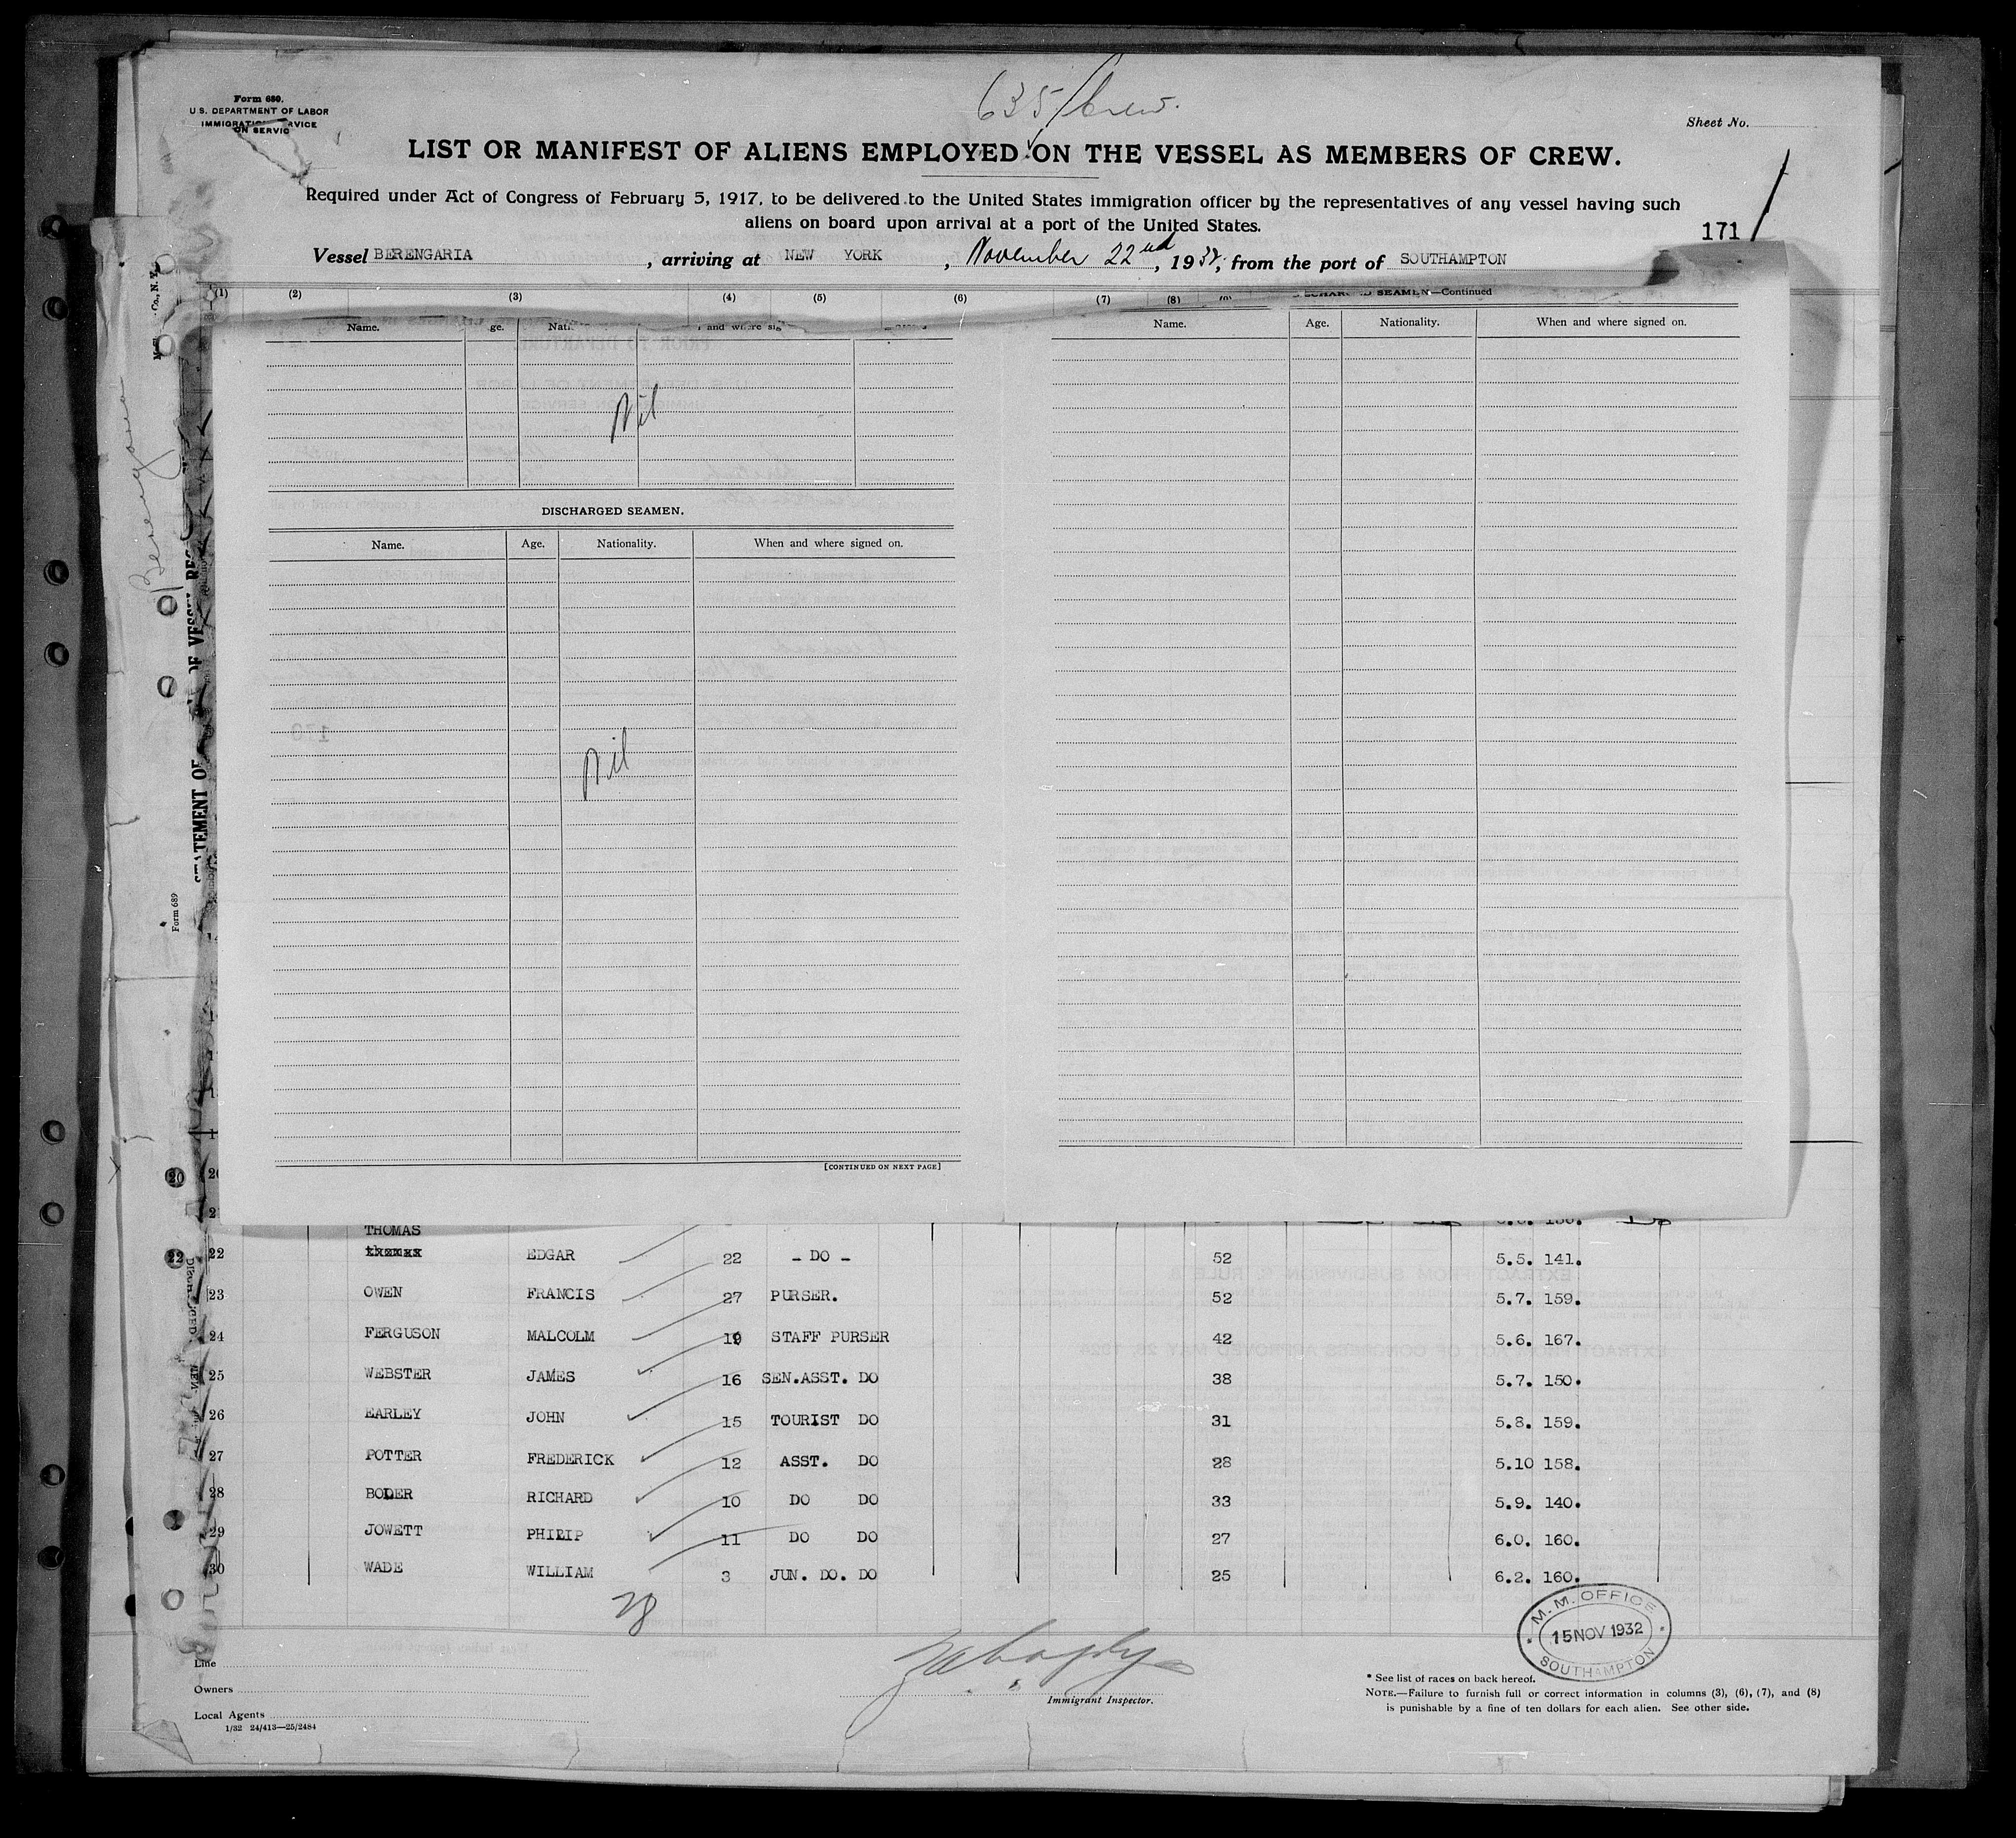 635/Crew.
Form 680.
U. S. DEPARTMENT OF LABOR
Sheet No.
LIST OR MANIFEST OF ALIENS EMPLOYED ON THE VESSEL AS MEMBERS OF CREW.
Required under Act of Congress of February 5, 1917, to be delivered to the United States immigration officer by the representatives of any vessel having such
aliens on board upon arrival at a port of the United States.
171
Vessel BERENGARIA, arriving at NEW YORK, November 22nd, 1932, from the port of SOUTHAMPTON
(1) (2) (3) (4) (5) (6) (7) (8)
SEAMEN—Continued
Name. and where
Name. Age. Nationality. When and where signed on.
Nil
Berengaria
DISCHARGED SEAMEN.
Name. Age. Nationality. When and where signed on.
STATEMENT OF OF VESSEL
Nil
Form 689
[CONTINUED ON NEXT PAGE]
THOMAS
22 EDGAR 22 - DO - 52 5.5. 141.
23 OWEN FRANCIS 27 PURSER. 52 5.7. 159.
24 FERGUSON MALCOLM 19 STAFF PURSER 42 5.6. 167.
25 WEBSTER JAMES 16 SEN.ASST. DO 38 5.7. 150.
26 EARLEY JOHN 15 TOURIST DO 31 5.8. 159.
27 POTTER FREDERICK 12 ASST. DO 28 5.10 158.
28 BODER RICHARD 10 DO DO 33 5.9. 140.
29 JOWETT PHILIP 11 DO DO 27 6.0. 160.
30 WADE WILLIAM 3 JUN. DO. DO 25 6.2. 160.
28
M. M. OFFICE
15 NOV 1932
SOUTHAMPTON
Line
Owners
Local Agents
1/32 24/413—25/2484
Immigrant Inspector.
* See list of races on back hereof.
NOTE.—Failure to furnish full or correct information in columns (3), (6), (7), and (8)
is punishable by a fine of ten dollars for each alien. See other side.